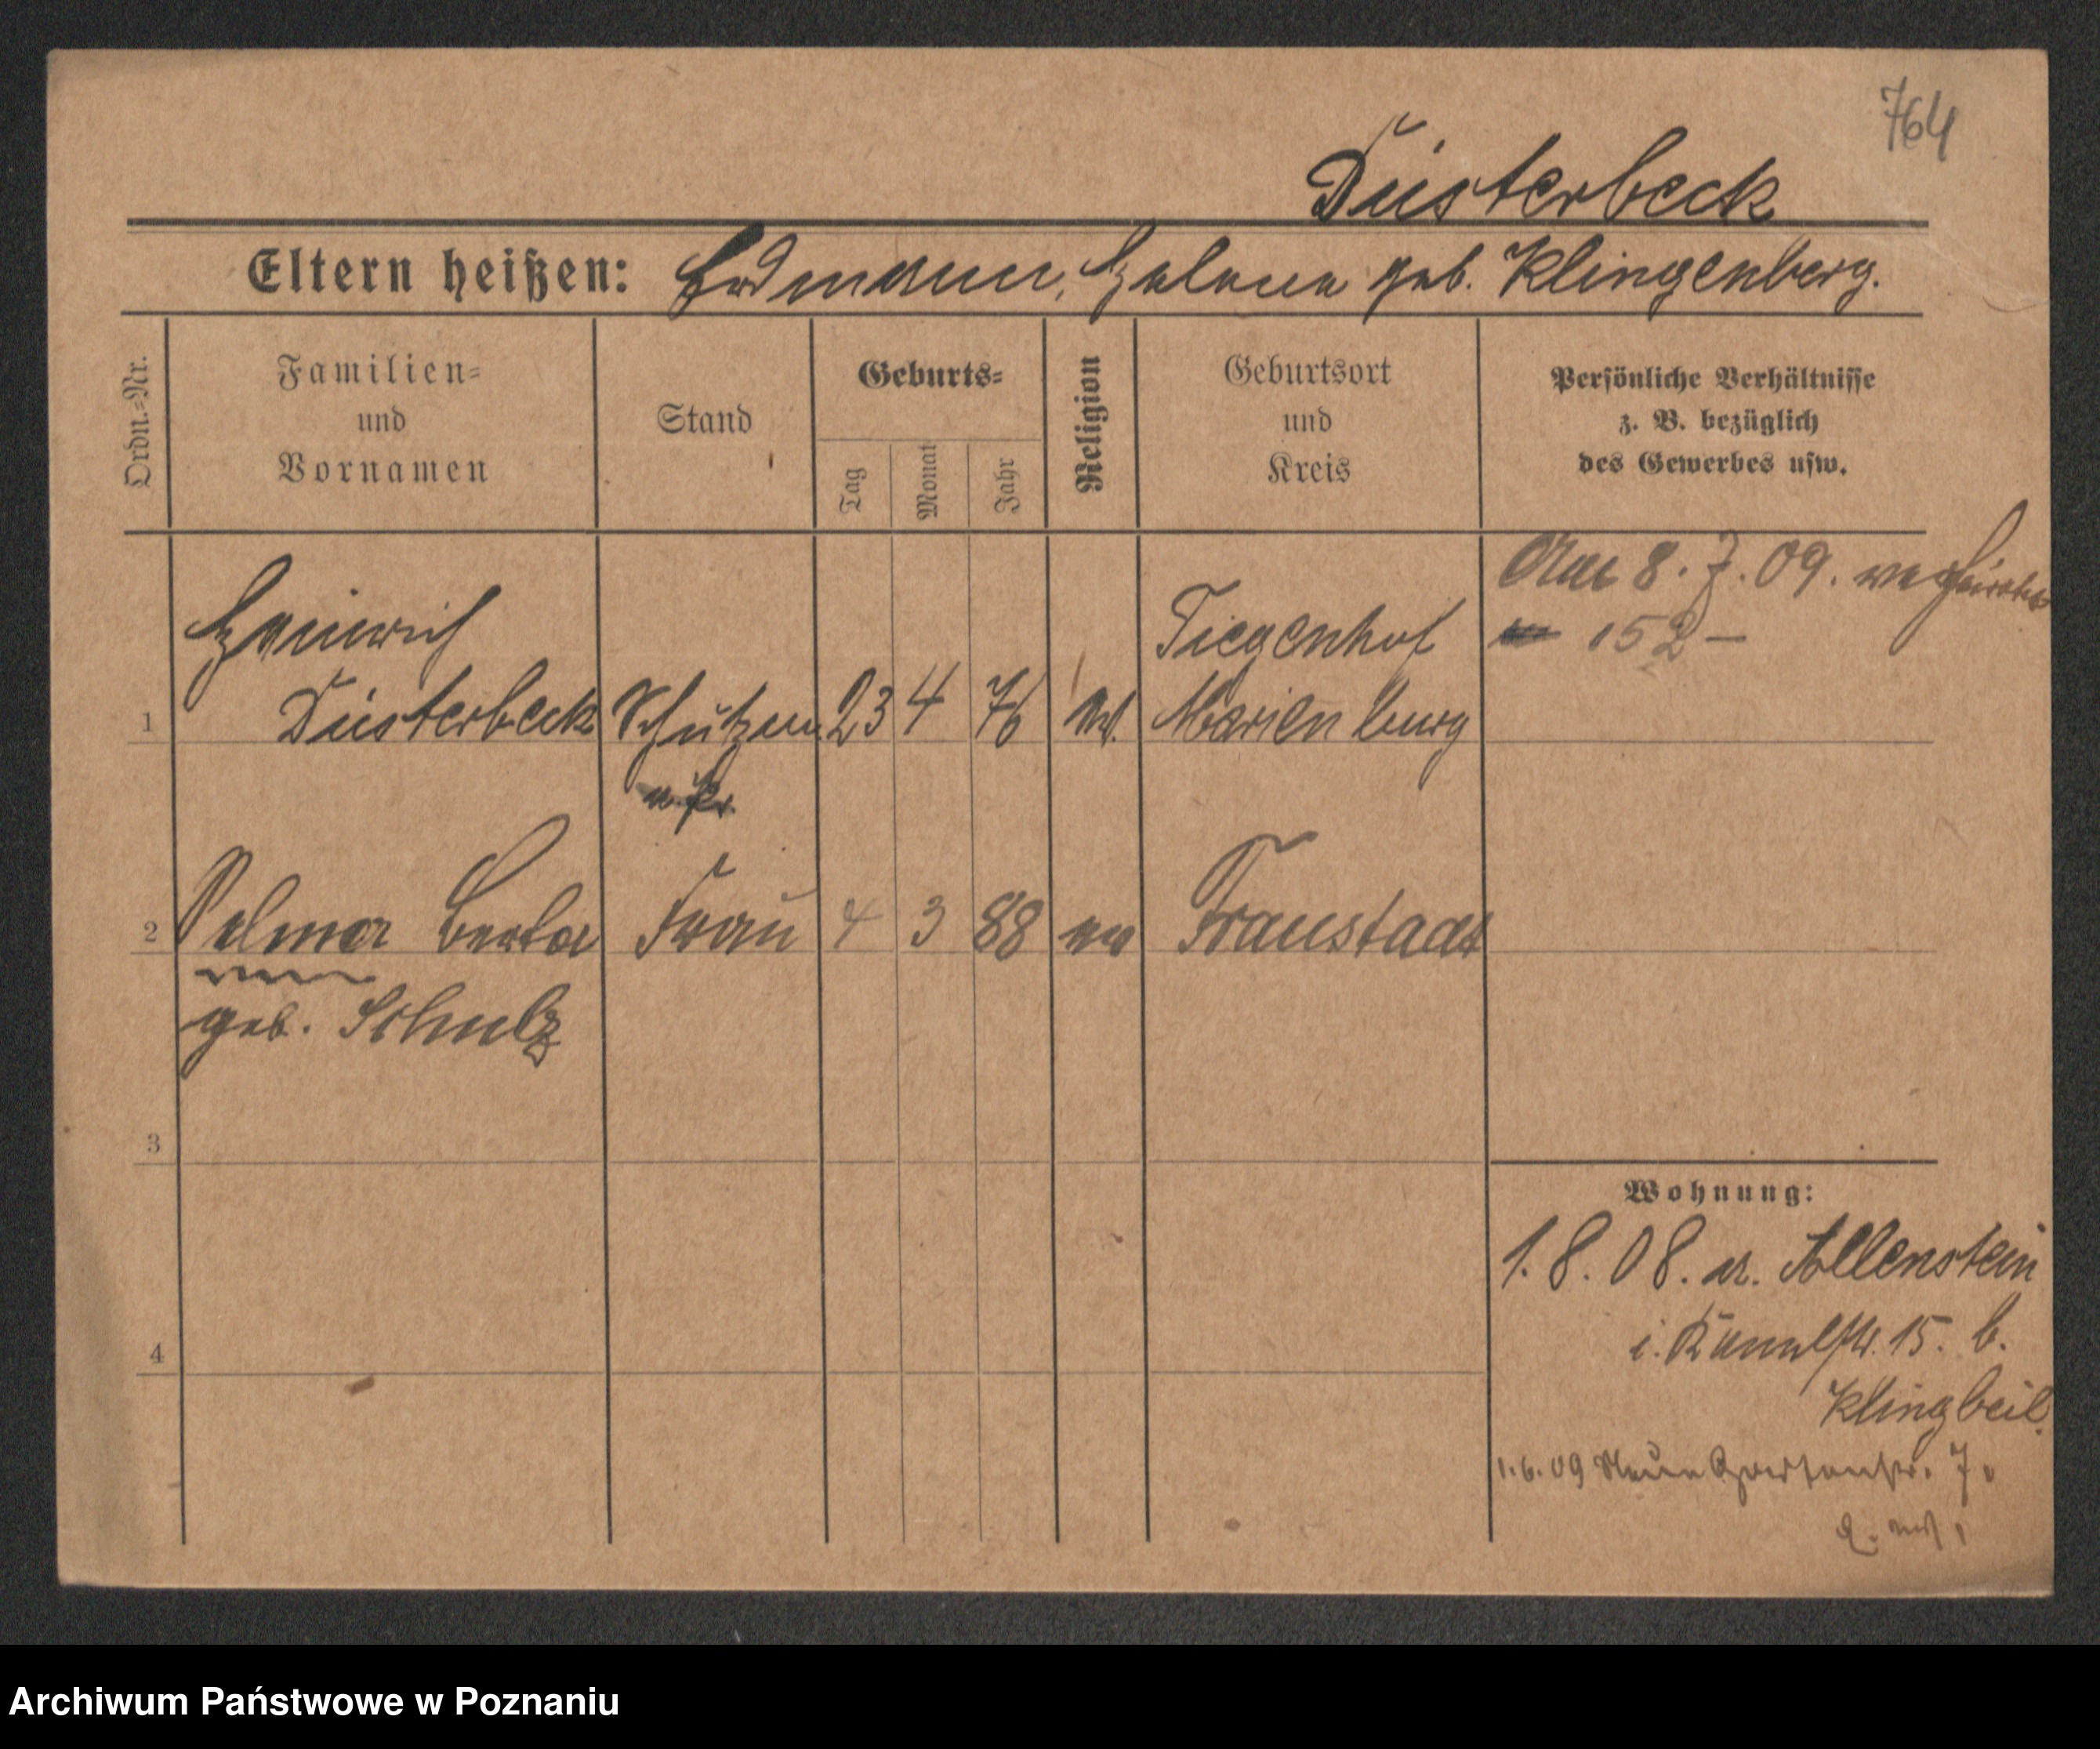 764
Düsterbeck
Eltern heißen: Erdmann, Helene geb. Klingenberg.
Ordn.=Nr.
Familien=
und
Vornamen
Stand
Geburts=
Tag
Monat
Jahr
Religion
Geburtsort
und
Kreis
Persönliche Verhältnisse
z. B. bezüglich
des Gewerbes usw.
Am 8. 7. 09. verheiratet
152 –
1
Heinrich
Düsterbeck
Schutzm
23 4 76
Tiegenhof
Marienburg
2
Selma Berta
Frau
4 3 88
Fraustadt
geb. Schulz
3
4
Wohnung:
1. 8. 08. Allenstein
15. b.
Klingbeil
1. 6. 09 Neue Gartenstr. 7.
Archiwum Państwowe w Poznaniu